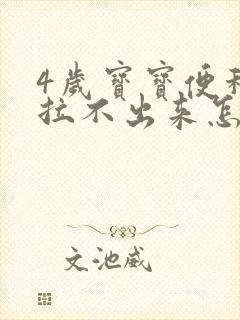 4歲寶寶便
拉不出来怎
文池威